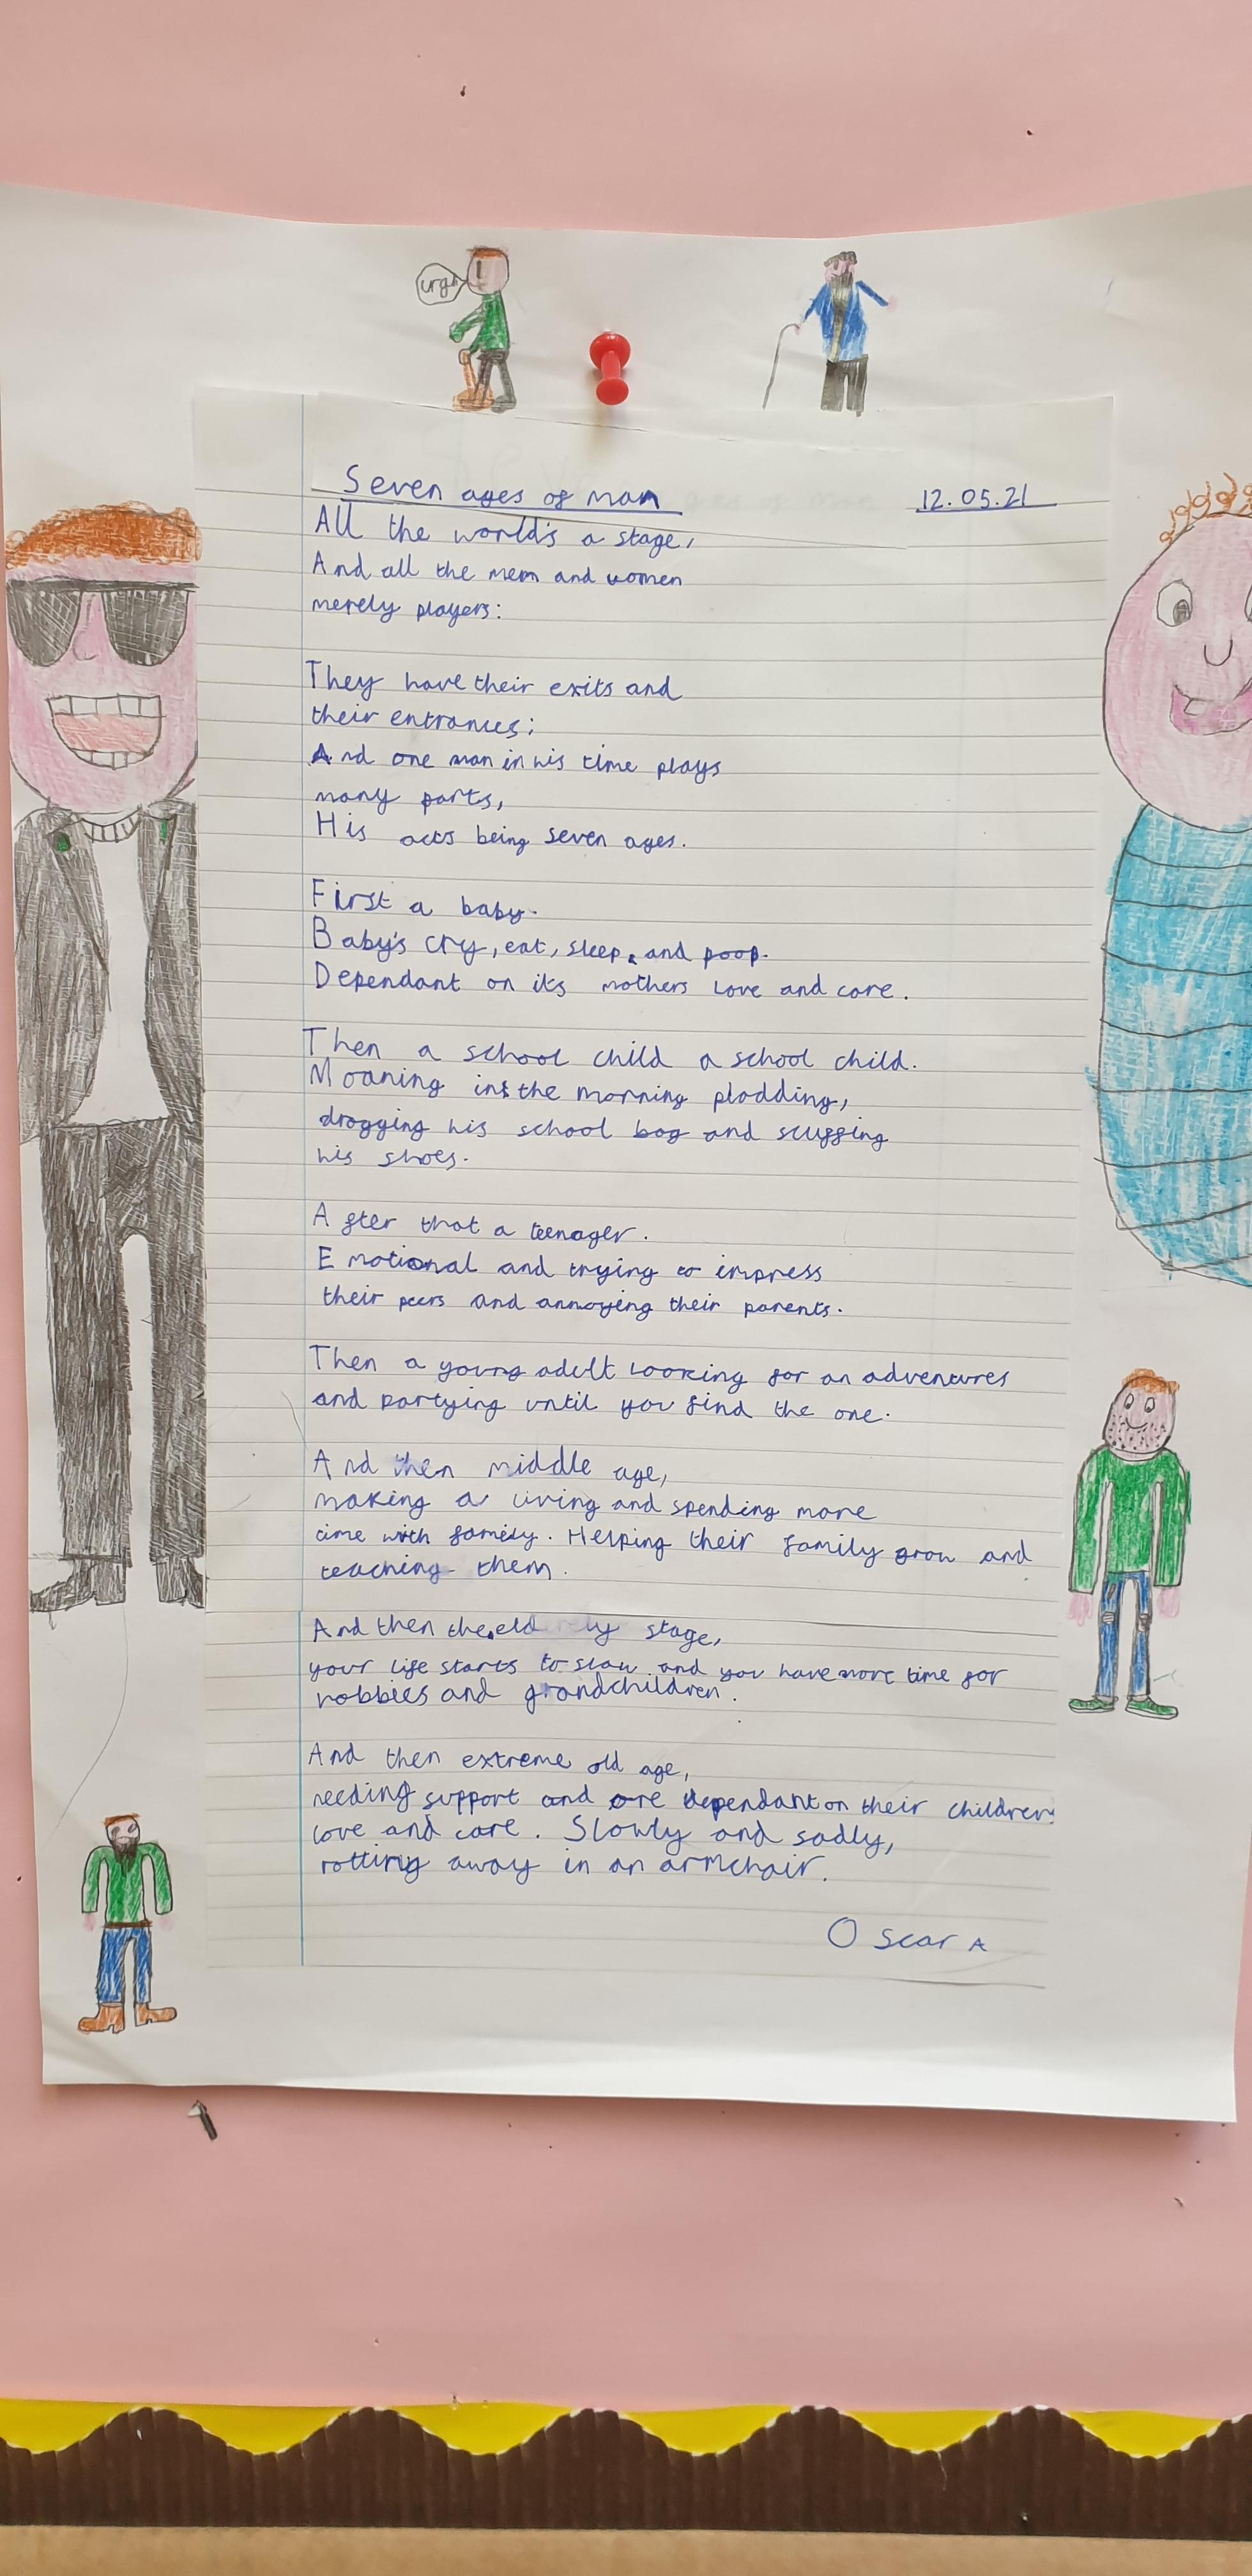 urgh
Seven ages of man
12.05.21
All the world's a stage,
And all the mem and women
merely players:
They have their exits and
their entrances;
And one man in his time plays
many parts,
His acts being seven ages.
First a baby.
Baby's cry, eat, sleep, and poop.
Dependant on its mothers love and care.
Then a school child a school child.
Moaning in the morning plodding,
dragging his school bag and scuffing
his shoes.
After that a teenager.
Emotional and trying to impress
their peers and annoying their parents.
Then a young adult looking for an adventures
and partying until you find the one.
And then middle age,
making a living and spending more
time with family. Helping their family grow and
teaching them.
And then the elderly stage,
your life starts to slow and you have more time for
hobbies and grandchildren.
And then extreme old age,
needing support and are dependant on their children
love and care. Slowly and sadly,
rotting away in an armchair.
Oscar A